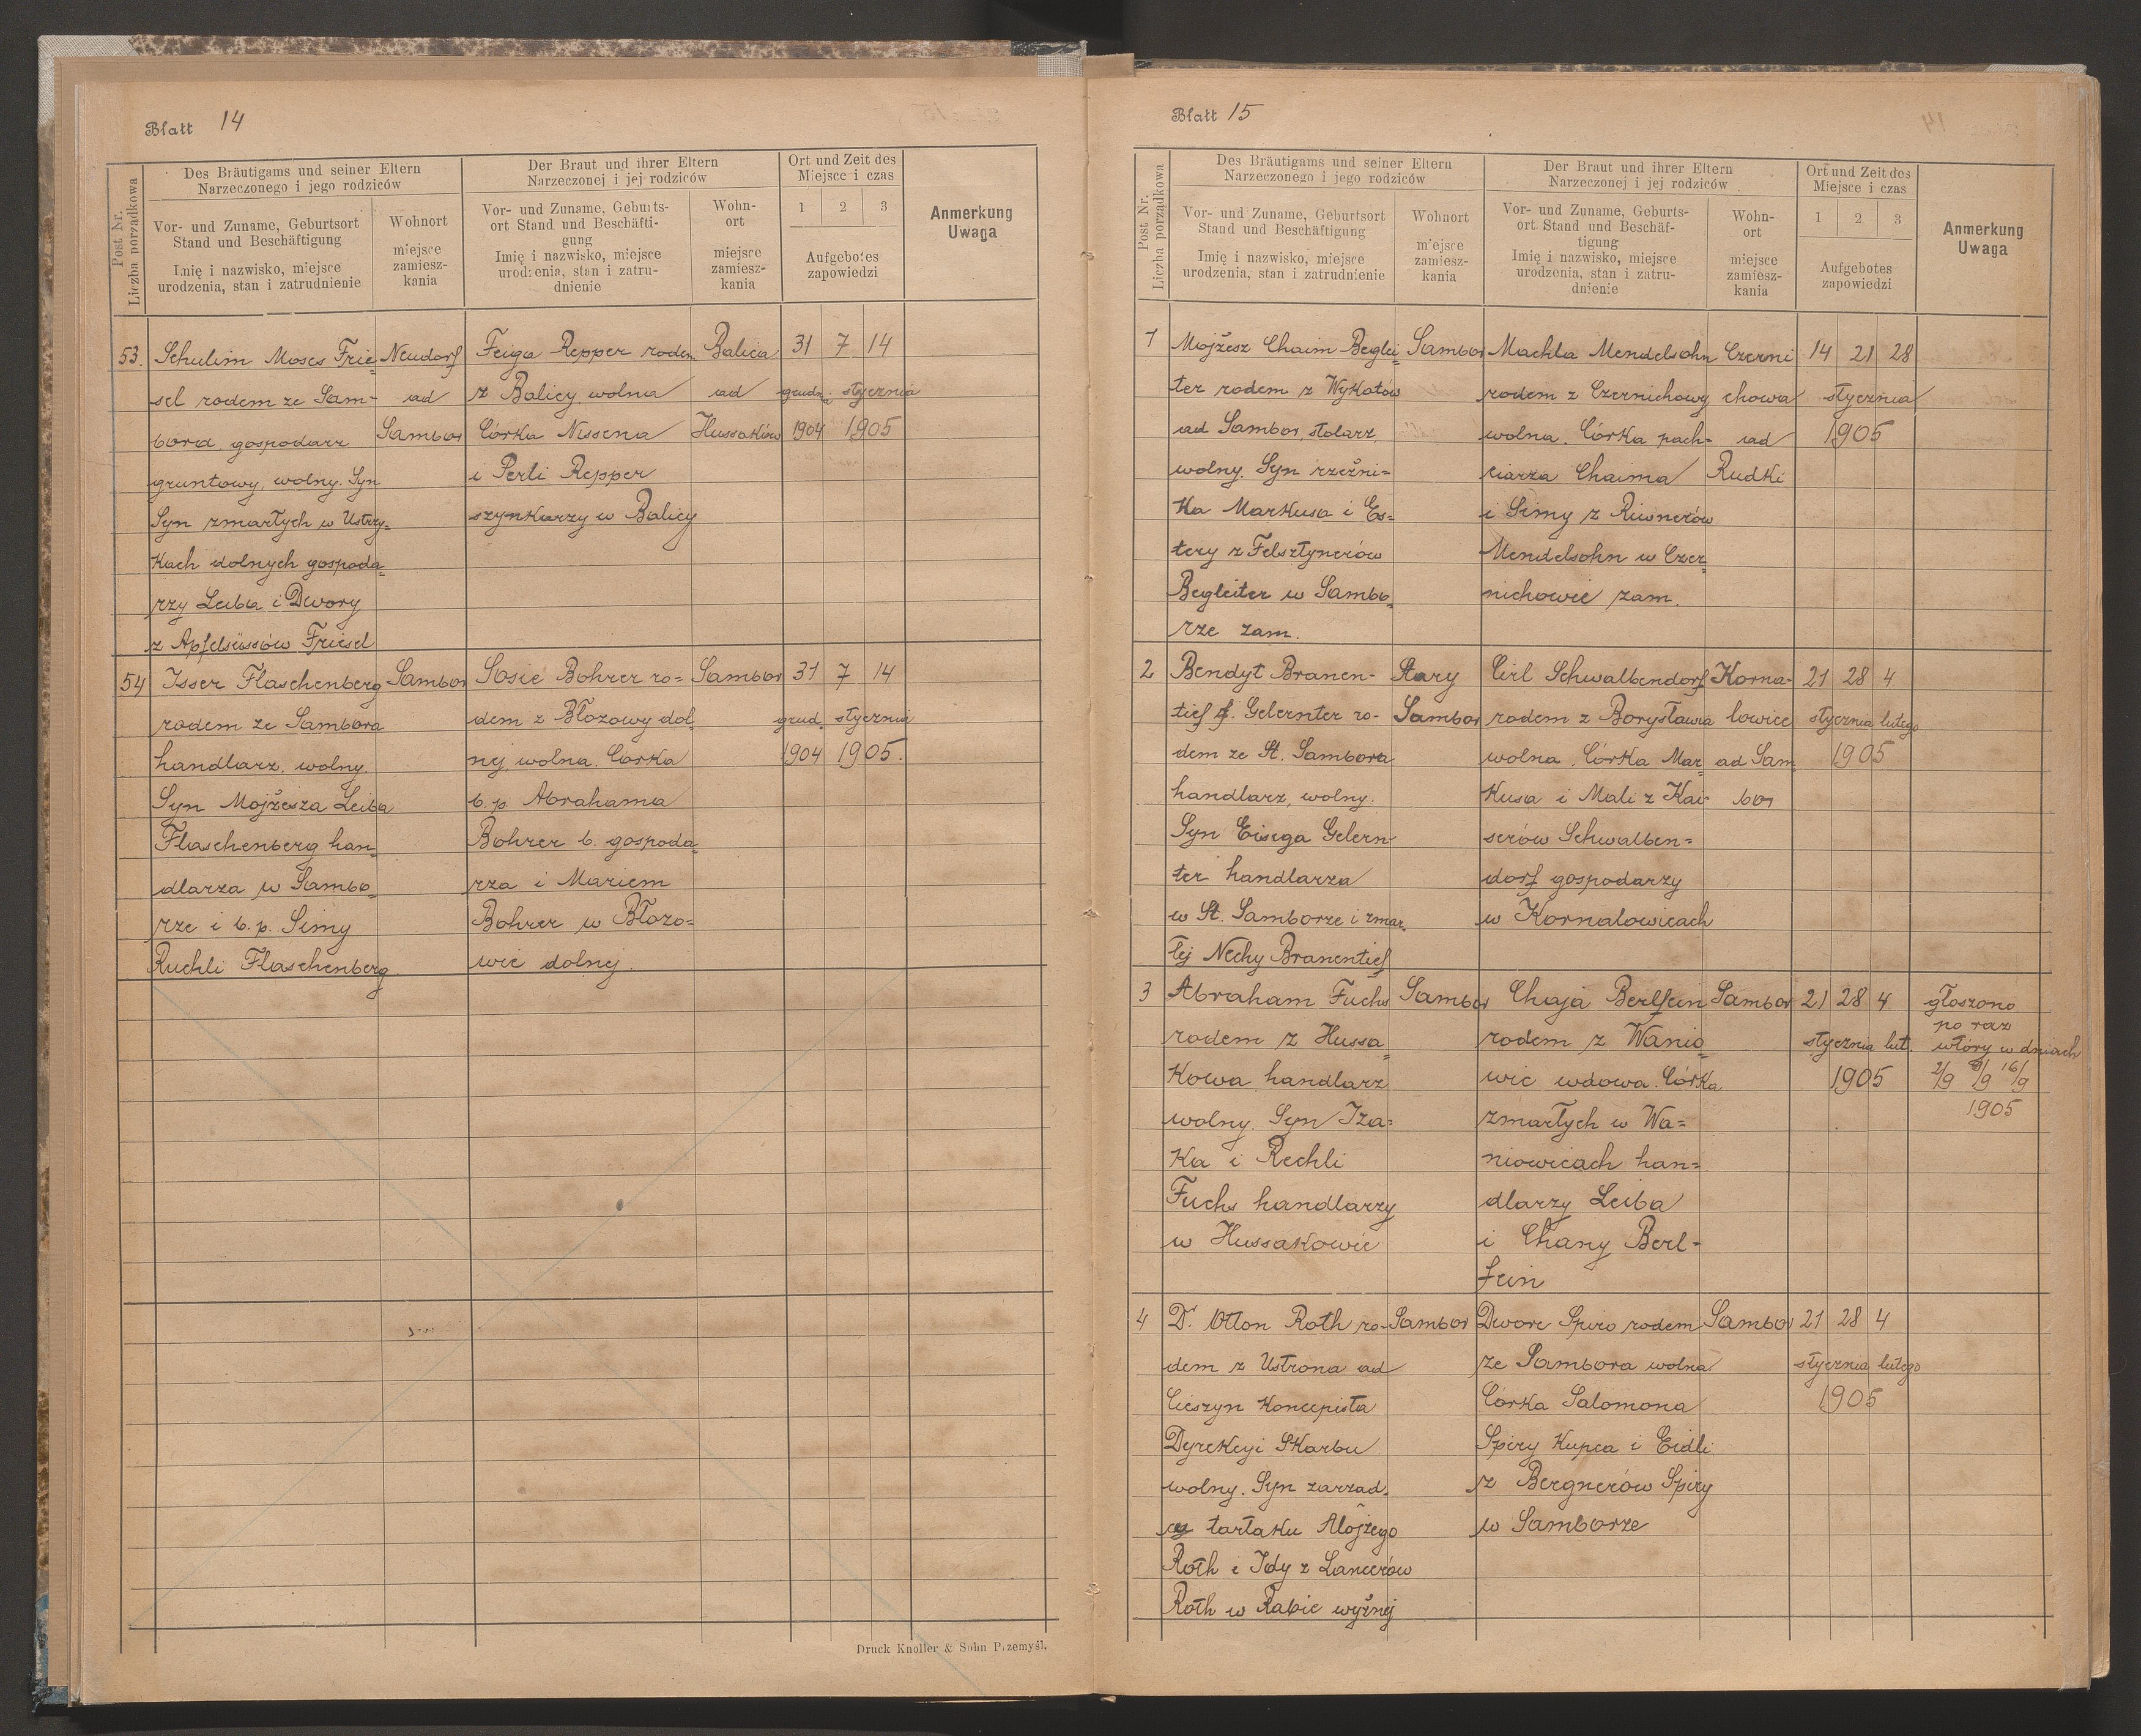 Blatt 14
Post Nr.
Liczba porządkowa
Des Bräutigams und seiner Eltern
Narzeczonego i jego rodziców
Der Braut und ihrer Eltern
Narzeczonej i jej rodziców
Ort und Zeit des
Miejsce i czas
Anmerkung
Uwaga
Vor- und Zuname, Geburtsort
Stand und Beschäftigung
Imię i nazwisko, miejsce
urodzenia, stan i zatrudnienie
Wohnort
miejsce
zamiesz-
kania
Vor- und Zuname, Geburts-
ort Stand und Beschäfti-
gung
Imię i nazwisko, miejsce
urodzenia, stan i zatru-
dnienie
Wohn-
ort
miejsce
zamiesz-
kania
1 2 3
Aufgebotes
zapowiedzi
53.
Schulim Moses Frie=
sel rodem ze Sam-
bora, gospodarz
gruntowy, wolny. Syn
Syn zmarłych w Ustrzy-
kach dolnych gospoda=
rzy Leiba i Dwory
z Apfelsüssów Friesel
Neudorf
ad
Sambor
Feiga Repper rodem
z Balicy wolna
Córka Nissena
i Perli Repper
szynkarzy w Balicy
Balica
ad
Hussaków
31 7 14
grudnia stycznia
1904 1905
54
Isser Flaschenberg
rodem ze Sambora
handlarz, wolny.
Syn Mojżesza Leiba
Flaschenberg han=
dlarza w Sambo=
rze i b. p. Simy
Ruchli Flaschenberg.
Sambor
Sosie Bohrer ro=
dem z Błozowy dol=
nej, wolna. Córka
b. p. Abrahama
Bohrer b. gospoda=
rza i Mariem
Bohrer w Błozo=
wie dolnej.
Sambor
31 7 14
grud. stycznia
1904 1905.
Druck Knoller & Sohn Przemyśl.
Blatt 15
Post Nr.
Liczba porządkowa
Des Bräutigams und seiner Eltern
Narzeczonego i jego rodziców
Der Braut und ihrer Eltern
Narzeczonej i jej rodziców
Ort und Zeit des
Miejsce i czas
Anmerkung
Uwaga
Vor- und Zuname, Geburtsort
Stand und Beschäftigung
Imię i nazwisko, miejsce
urodzenia, stan i zatrudnienie
Wohnort
miejsce
zamiesz-
kania
Vor- und Zuname, Geburts-
ort. Stand und Beschäf-
tigung
Imię i nazwisko, miejsce
urodzenia, stan i zatru-
dnienie
Wohn-
ort
miejsce
zamiesz-
kania
1 2 3
Aufgebotes
zapowiedzi
1
Mojżesz Chaim Beglei=
ter rodem z Wykotów
ad Sambor, stolarz,
wolny. Syn rzeźni=
ka Markusa i Es=
tery z Felsztynerów
Begleiter w Sambo=
rze zam.
Sambor
Machla Mendelsohn
rodem z Czernichowy
wolna. Córka pach=
ciarza Chaima
i Simy z Riwnerów
Mendelsohn w Czer=
nichowie zam.
Czerni
chowa
ad
Rudki
14 21 28
stycznia
1905
2
Bendyt Branen-
tief f. Gelernter ro-
dem ze St. Sambora
handlarz, wolny.
Syn Eisega Gelern-
ter handlarza
w St. Samborze i zmar=
łej Nechy Branentief
Stary
Sambor
Cirl Schwalbendorf
rodem z Borysławia
wolna. Córka Mar=
kusa i Mali z Kai-
serów Schwalben=
dorf gospodarzy
w Kornalowicach
Korna-
lowice
ad Sam
bor
21 28 4
stycznia lutego
1905
3
Abraham Fuchs
rodem z Hussa=
kowa handlarz
wolny. Syn Iza=
ka i Rechli
Fuchs handlarzy
w Hussakowie
Sambor
Chaja Berlfein
rodem z Wanio=
wic wdowa. Córka
zmarłych w Wa=
niowicach han=
dlarzy Leiba
i Chany Berl-
fein
Sambor
21 28 4
stycznia lut.
1905
głoszono
po raz
wtóry w dniach
2/9 9/9 16/9
1905
4
Dr. Otton Roth ro-
dem z Ustrona ad
Cieszyn koncepista
Dyrekcyi Skarbu
wolny. Syn zarząd=
cy tartaku Alojzego
Roth i Idy z Lancerów
Roth w Rabie wyżnej
Sambor
Dwore Spiro rodem
ze Sambora wolna
Córka Salomona
Spiry kupca i Eidli
z Bergnerów Spiry
w Samborze
Sambor
21 28 4
stycznia lutego
1905